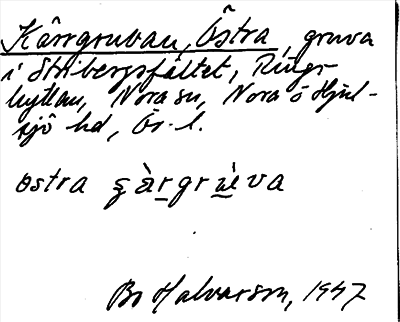 Kärrgruvan, Östra, gruva
i Stribergsfältet, Rings-
hyttan, Nora sn, Nora o Hjul-
sjö hd, Ör. l.
östra ʂà̱rgrù̱va
Bo Halvarson, 1947